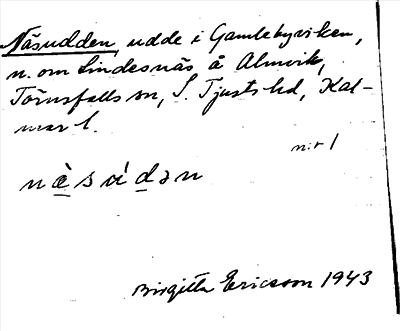 Näsudden, udde i Gamlebyviken,
n. om Lindesnäs å Almvik,
Törnsfalls sn, S. Tjusts hd, Kal-
mar l.
n:r 1
Birgitta Ericsson 1943